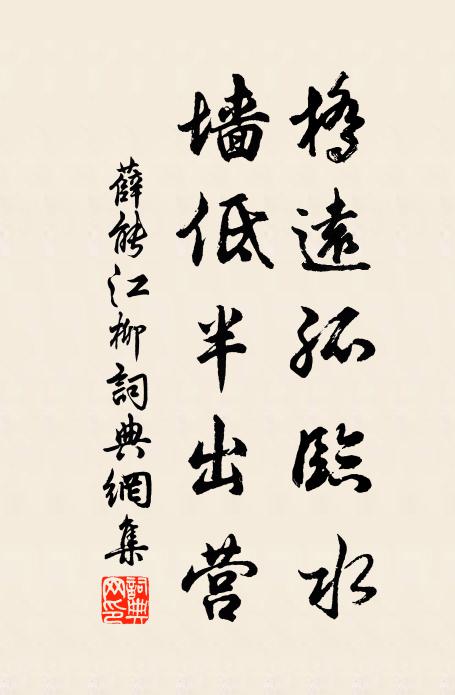 橋遠孤臨水
墙低半出营
薛能江柳詞典網集
詞典
网印